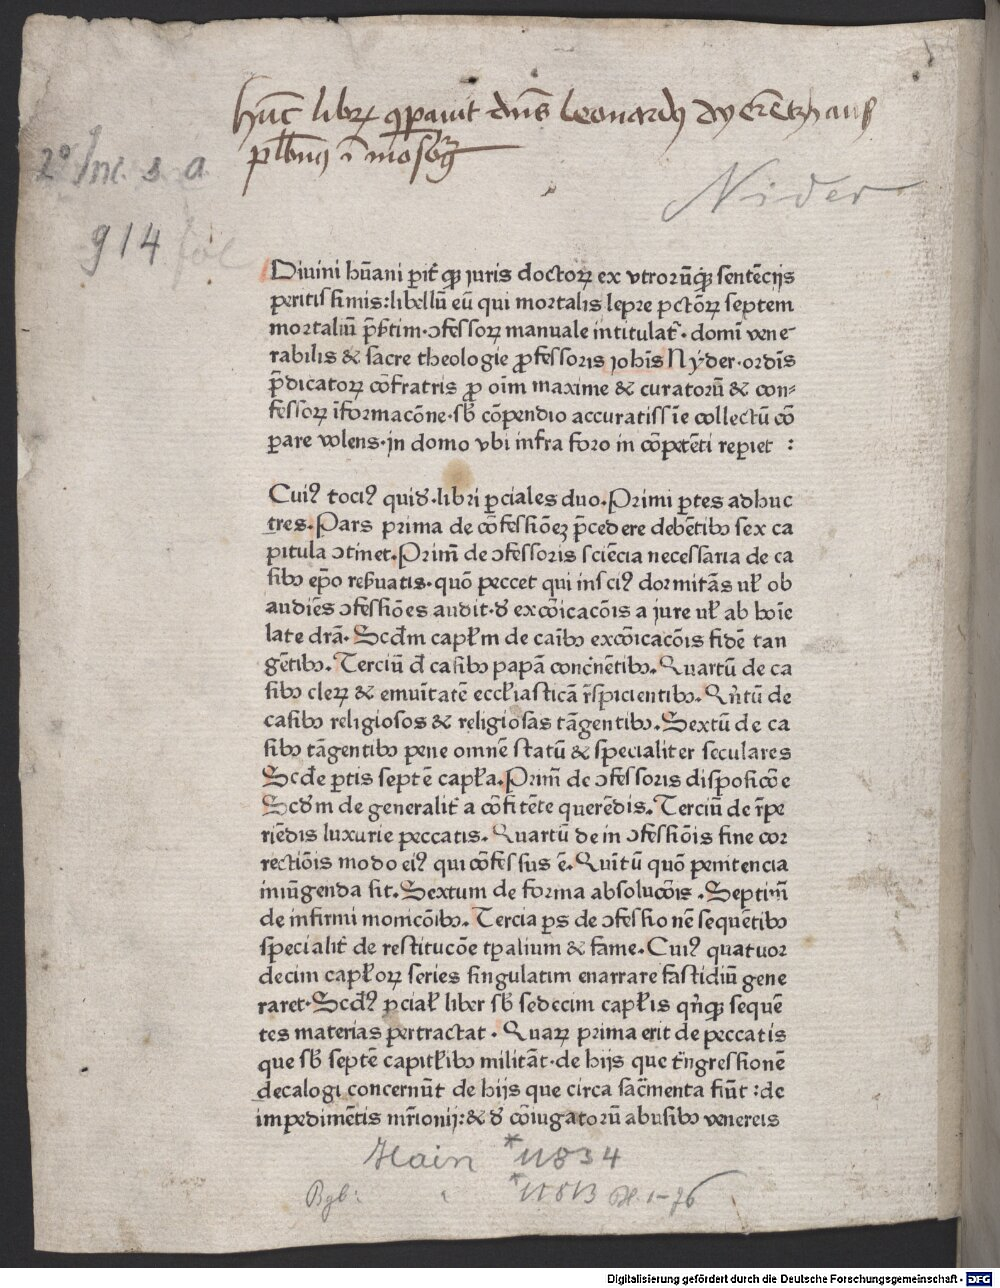 hūc librꝝ ꝯparauit dn̄s leonardꝰ
plb̄nꝰ ī mosb̄g
2° Inc. s. a.
914 fol
Nider
Diuini hūani ꝑit̄ qꝫ iuris doctoꝝ ex vtrorūqꝫ sentēcijs
peritissimis:libellū eū qui mortalis lepre pctōꝝ septem
mortaliū p̄ſtim·ꝯfessoꝝ manuale intitulat̄· domi vene-
rabilis & sacre theologie ꝓfessoris ioh̄is Nyder·ordīs
p̄dicatoꝝ cōfratris ꝓ oīm maxime & curatorū & con-
fessoꝝ īformacōne·sb̄ cōpendio accuratissīe collectū cō
ꝑare volens·in domo vbi infra foro in cōpetēti reꝑiet :
Cuiꝰ tociꝰ quid̄·libri ꝑciales duo.Primi ꝑtes adhuc
tres.Pars prima de cōfessiōeꝫ p̄cedere debētibꝫ sex ca
pitula ꝯtinet.Prim̄ de ꝯfessoris sciēcia necessaria de ca
sibꝫ ep̄o reſuatis·quō peccet qui insciꝰ dormitās ul̄ ob
audiēs ꝯfessiōes audit·d̄ excōicacōis a iure ul̄ ab hoīe
late dr̄a. Scd̄m capl̄m de caībꝫ excōicacōis fidē tan
gētibꝫ. Terciū d̄ casibꝫ papā conc̄nētibꝫ. Quartū de ca
sibꝫ cleꝝ & emuītatē eccl̄iasticā r̄spicientibꝫ. Qn̄tū de
casibꝫ religiosos & religiosas tāgentibꝫ. Sextū de ca
sibꝫ tāgentibꝫ pene omnē statū & specialiter seculares
Scd̄e ꝑtis septē capl̄a.Prim̄ de ꝯfessoris disposicōe
Scd̄m de generalit̄ a cōfitēte querēdis. Terciū de r̄pe
riēdis luxurie peccatis. Quartū de in ꝯfessiōis fine cor
rectiōis modo eiꝰ qui cōfessus ē. Quītū quō penitencia
iniūgenda sit. Sextum de forma absolucōis . Septim̄
de infirmi monicōibꝫ. Tercia ꝑs de ꝯfessionē sequētibꝫ
specialit̄ de restitucōe tꝑalium & fame. Cuiꝰ quatuor
decim capl̄oꝝ series singulatim enarrare fastidiū gene
raret·Scd̄ꝰ ꝑcial̄ liber sb̄ sedecim capl̄is qn̄qꝫ sequē
tes materias pertractat . Quaꝝ prima erit de peccatis
que sb̄ septē capitl̄ibꝫ militāt·de hijs que tn̄gressionē
decalogi concernūt de hijs que circa sac̄menta fiūt :de
impedimētis mr̄ionij:& d̄ cōiugatorū abusibꝫ venereis
Hain *11834
Bgb: *11813 Bl. 1-76
Digitalisierung gefördert durch die Deutsche Forschungsgemeinschaft - DFG